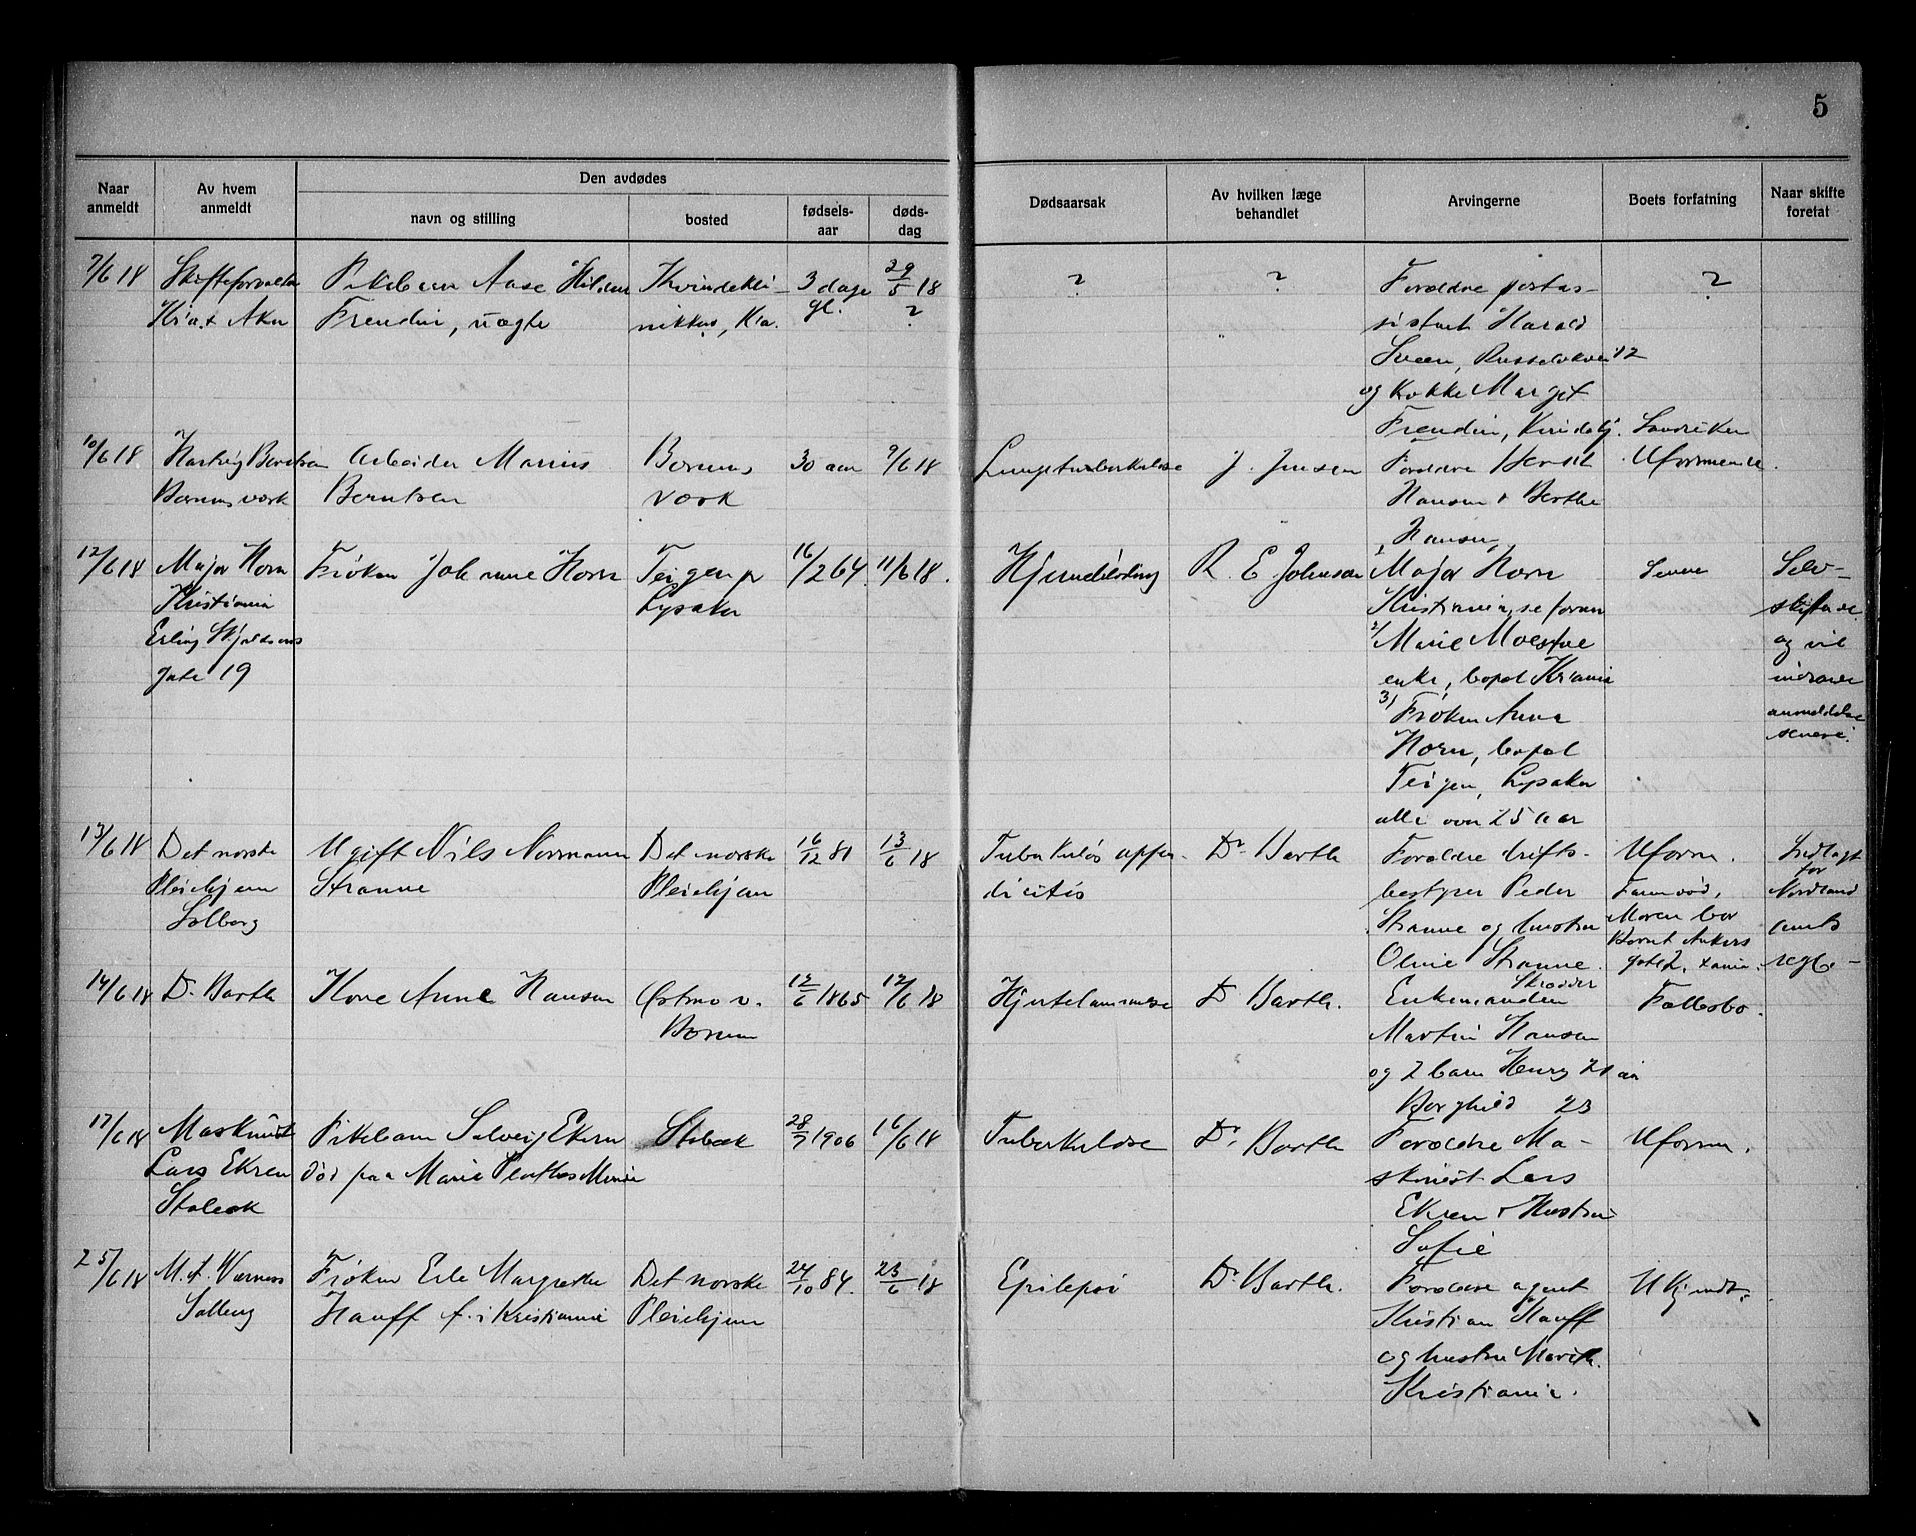 5
Naar anmeldt
Av hvem anmeldt
Den avdødes
navn og stilling
bosted
fødsels-aar
døds-dag
Dødsaarsak
Av hvilken læge behandlet
Arvingerne
Boets forfatning
Naar skifte foretat
7/6 18
Skifteforvalter
Kr.a. Aker
Pikebarn Aase
Frendin, uægte
Kvindekli-
nikken, Kra.
3 dage
gl.
29/5 18
?
?
?
Forældre postas-
sistent Harald
Sveen, 12
og Kokke Marget
Frendin,
?
10/6 18
Bærums værk
Arbeider Marius
Berntsen
Bærums
værk
30 aar
9/6 18
Lungetuberkulose
J. Jensen
Forældre
Hansen & Berthe
Hansen
Sandviken
Uformuende.
12/6 18
Major Horn
Kristiania
Erling Skjalgsens
gate 19
Frøken Johanne Horn
Teigen pr
Lysaker
16/2 64.
11/6 18.
R. E. Johnson
1/ Major Horn
Kristiania, se foran
2/ Marie
enke, bopæl Kr.ania
3/ Frøken Anna
Horn, bopæl
Teigen, Lysaker
alle over 25 aar
Selv-
skiftende
og vil
anmeldelse
senere.
13/6 18
Det norske
Pleiehjem
Solberg
Ugift Nils Normann
Stranne
Det norske
Pleiehjem
16/12 81
13/6 18
Tuberkuløs appen-
dicitis
Dr Barth
Forældre drifts-
bestyrer Peder
Stranne og hustru
Oline Stranne.
Uform.
Faren død,
Moren bor
Bernt Ankers
gate
Indlagt
for
Nordland
amts
regn-
14/6 18
Dr Barth
Kone Anne Hansen
Østmo v.
Bærum
12/6 1865
12/6 18
Hjertelammelse
Dr Barth.
Skrædder
Enkemanden
Martin Hansen
og 2 barn Henry 21 aar
Borghild 23
Fællesbo.
17/6 18
Maskinist
Lars Ekren
Stabæk
Pikebarn Solveig Ekren
død paa Marie Plathes Minde
Stabæk
28/7 1906
16/6 18
Tuberkulose
Dr. Barth
Forældre Ma-
skinist Lars
Ekren & Hustru
Sofie
Uform.
25/6 18
M. A. Værness
Solberg
Frøken Erle Margrethe
Hauff f. i Kristiania
Det norske
Pleiehjem
24/10 84.
23/6 18
Epilepsi
Dr Barth.
Forældre agent
Kristian Hauff
og hustru
Kristiania.
Ukjendt.